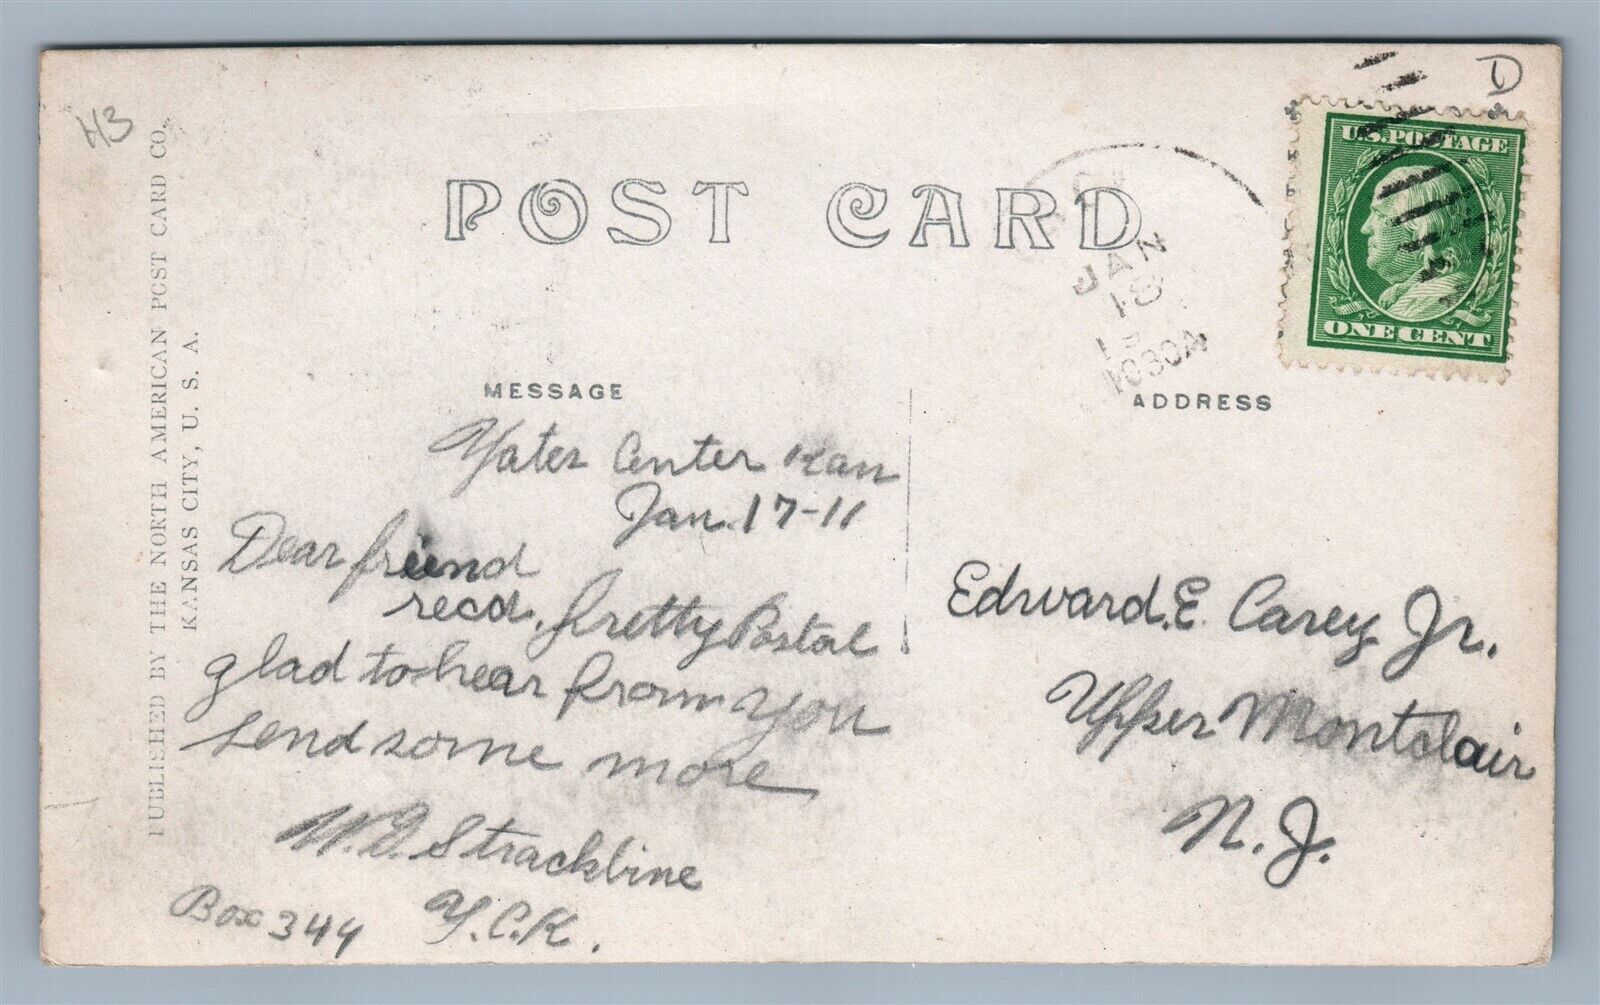 H3
D
PUBLISHED BY THE NORTH AMERICAN POST CARD CO.,
KANSAS CITY, U. S. A.
POST CARD
U.S. POSTAGE
ONE CENT
JAN
18
1030A
MESSAGE
ADDRESS
Yates Center Kan
Jan. 17-11
Dear friend
recd. Pretty Postal
glad to hear from you
send some more
Strackbine
Box 344 Y.C.K.
Edward. E. Carey Jr.
Upper Montclair
N. J.